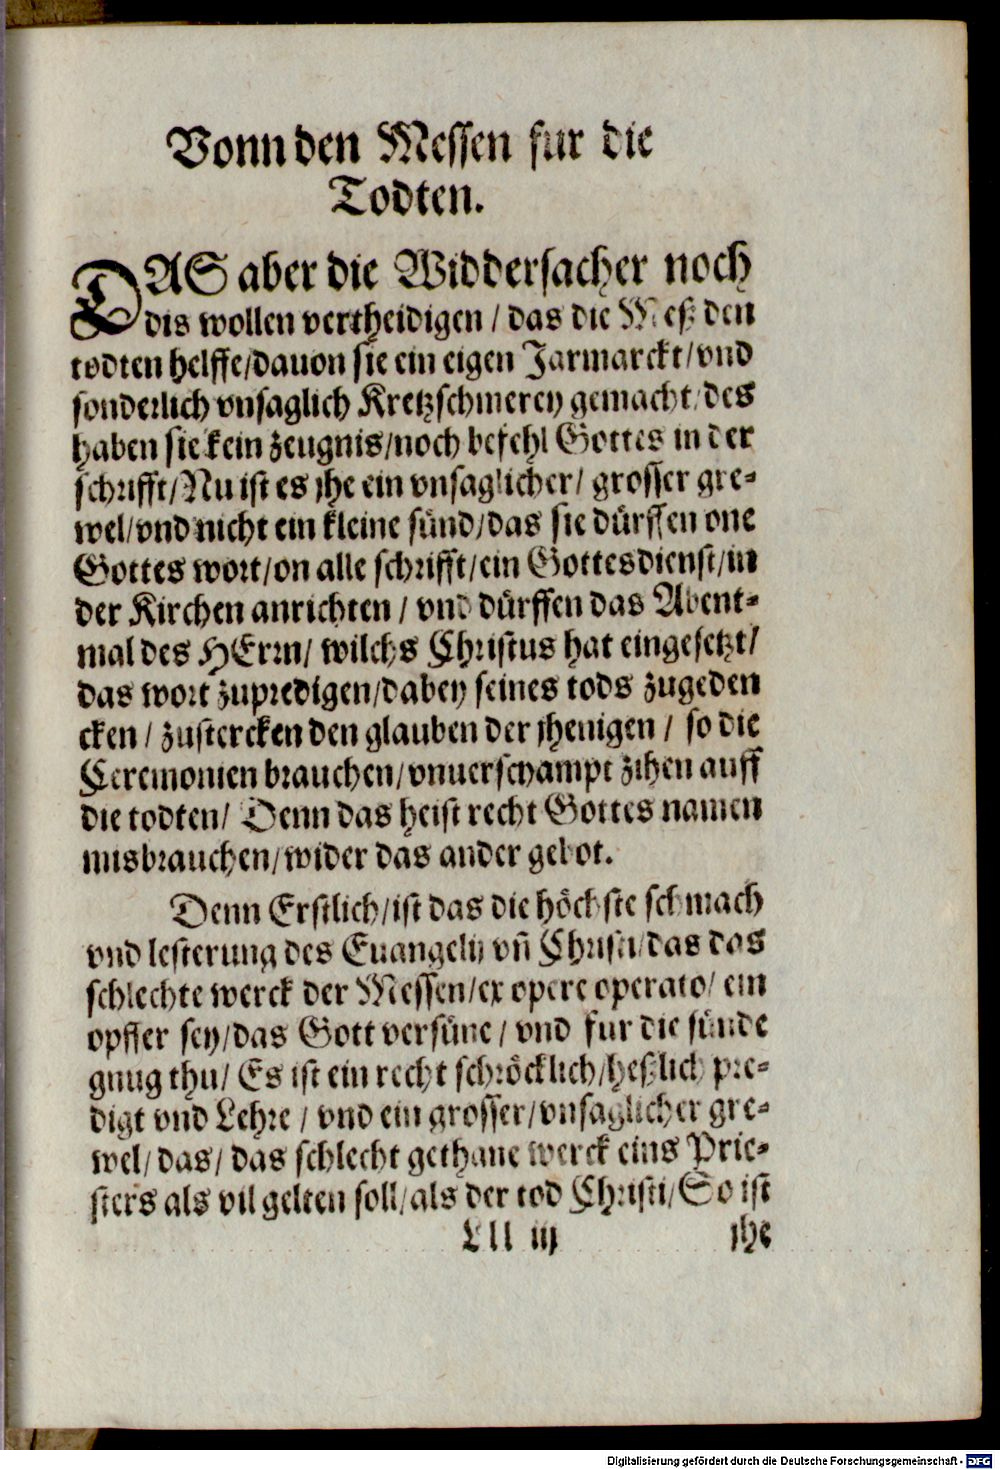 Vonn den Messen fur die
Todten.
DAS aber die Widdersacher noch
dis wollen vertheidigen / das die Meß den
todten helffe/dauon sie ein eigen Jarmarckt/vnd
sonderlich vnsaglich Kretzschmerey gemacht/des
haben sie kein zeugnis/noch befehl Gottes in der
schrifft/Nu ist es jhe ein vnsaglicher/ grosser gre-
wel/vnd nicht ein kleine sünd/das sie dürffen one
Gottes wort/on alle schrifft/ein Gottesdienst/in
der Kirchen anrichten / vnd dürffen das Abent-
mal des HErrn/ wilchs Christus hat eingesetzt/
das wort zupredigen/dabey seines tods zugeden
cken / zustercken den glauben der jhenigen / so die
Ceremonien brauchen/vnuerschampt zihen auff
die todten/ Denn das heist recht Gottes namen
misbrauchen/wider das ander gebot.
Denn Erstlich/ist das die höchste schmach
vnd lesterung des Euangelij vñ Christi/das das
schlechte werck der Messen/ex opere operato/ ein
opffer sey/das Gott versüne / vnd fur die sünde
gnug thu/ Es ist ein recht schröcklich/heßlich pre-
digt vnd Lehre / vnd ein grosser/vnsaglicher gre-
wel/das/ das schlecht gethane werck eins Prie-
sters als vil gelten soll/als der tod Christi/So ist
Lll iij jhe
Digitalisierung gefördert durch die Deutsche Forschungsgemeinschaft - DFG